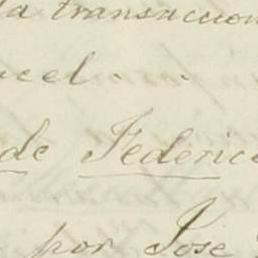 la transaccion
cel..
de Federico
por Jose